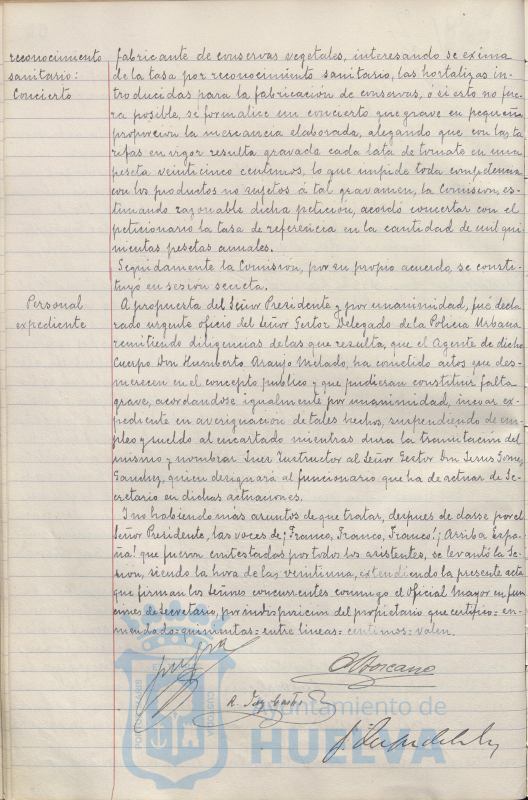 reconocimiento
sanitario:
Concierto
fabricante de conservas vegetales, interesando se exima
de la tasa por reconocimiento sanitario, las hortalizas in-
troducidas para la fabricación de conservas, ó si esto no fue-
ra posible, se formalice un concierto que grave en pequeña
proporcion la mercancia elaborada, alegando que con las ta
rifas en vigor resulta gravada cada lata de tomate en una
peseta veinticinco centimos, lo que impide toda competencia
con los productos no sujetos á tal gravamen, la Comision, es-
timando razonable dicha petición, acordó concertar con el
peticionario la tasa de referencia en la cantidad de mil qui
nientas pesetas anuales.
Seguidamente la Comision, por su propio acuerdo, se consti-
tuyó en sesion secreta.
Personal
expediente
A propuesta del Señor Presidente y por unanimidad, fué decla
rado urgente oficio del Señor Gestor Delegado de la Policia Urbana
remitiendo diligencias de las que resulta, que el Agente de dicho
Cuerpo Don Humberto Araujo Melado, ha cometido actos que des-
merecen en el concepto publico y que pudieran constituir falta
grave, acordandose igualmente por unanimidad, incoar ex-
pediente en averiguación de tales hechos, suspendiendo de em-
pleo y sueldo al encartado mientras dura la tramitación del
mismo y nombrar Juez Instructor al Señor Gestor Don Jesus Gomez
Sanchez, quien designará al funcionario que ha de actuar de Se-
cretario en dichas actuaciones.
I no habiendo más asuntos de que tratar, despues de darse por el
Señor Presidente, las voces de ¡Franco, Franco, Franco! ¡Arriba Espa-
ña! que fueron contestadas por todos los asistentes, se levantó la Se-
sion, siendo la hora de las veintiuna, extendiendo la presente acta
que firman los Señores concurrentes conmigo el Oficial Mayor en fun
ciones de Secretario, por indisposicion del propietario que certifico = en-
mendado = quinientas = entre lineas = centimos = valen.
Ayuntamiento de
HUELVA